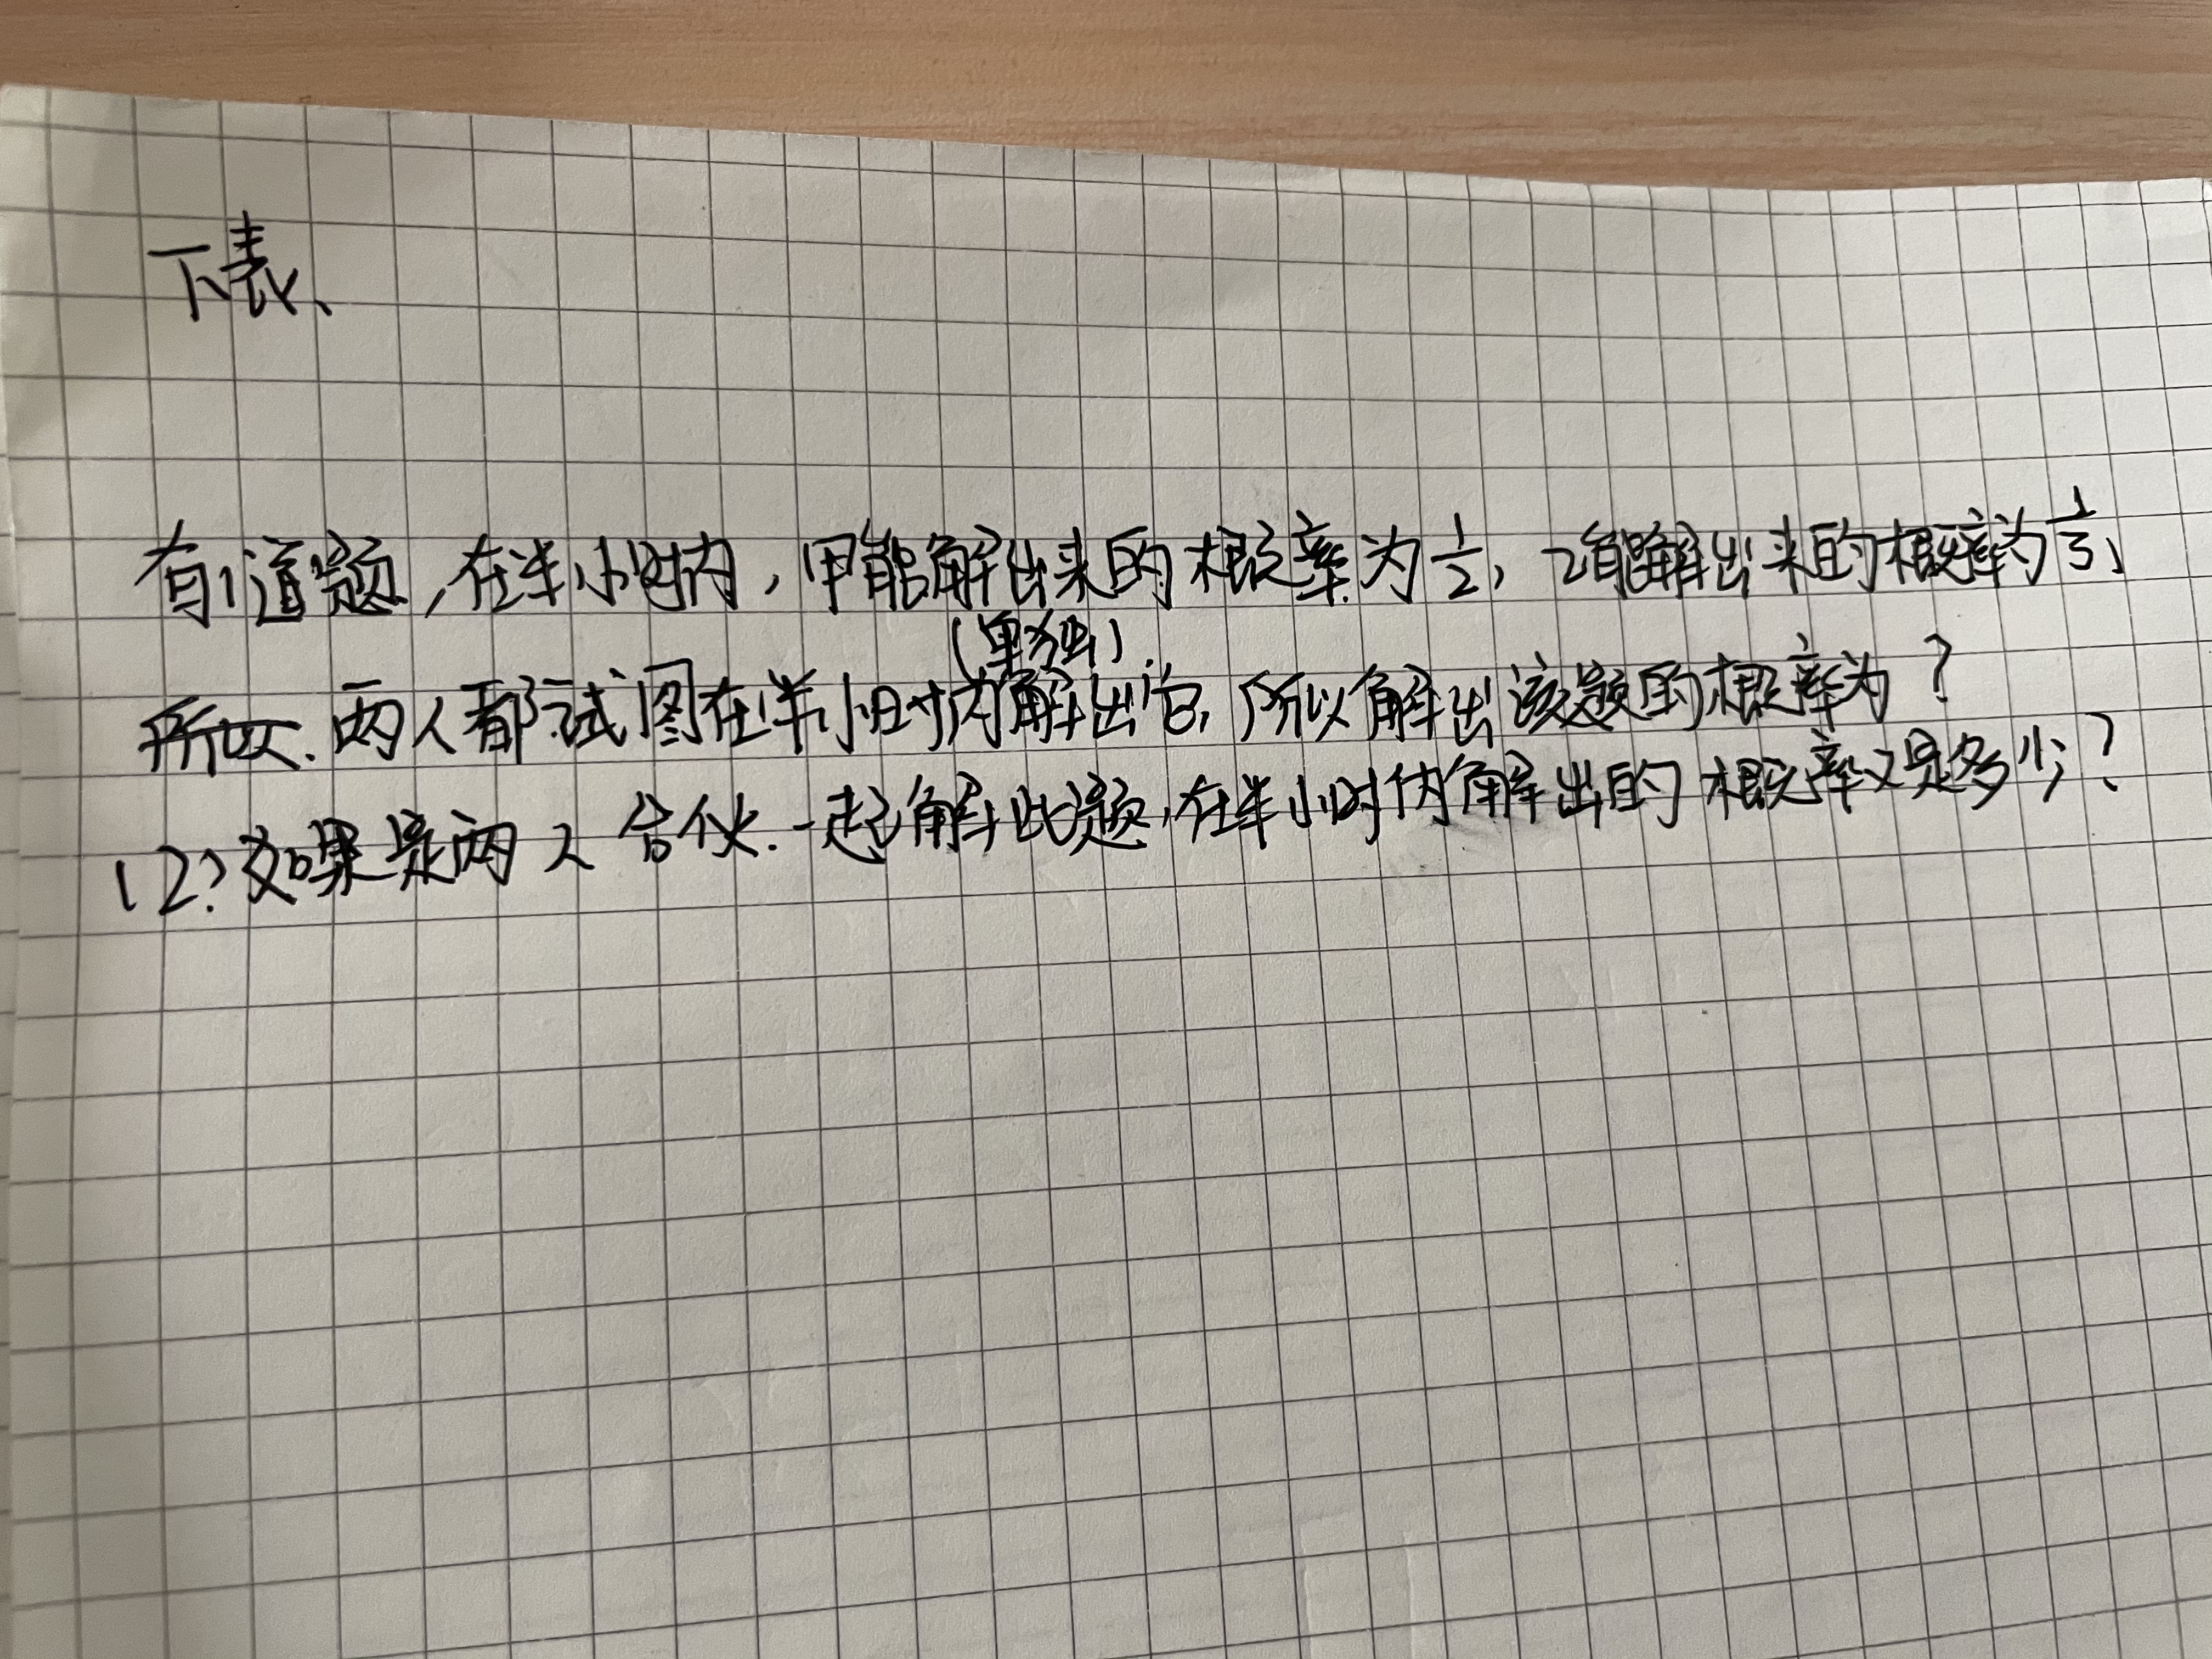 下载、
有一道题，在半小时内，甲能解出来的概率为1/2，乙能解出来的概率为1/3，
所以.两人都试图在半小时内(单独)解出它，所以解出该题的概率为？
(2)如果是两人合伙.一起解此题，在半小时内解出的概率又是多少？